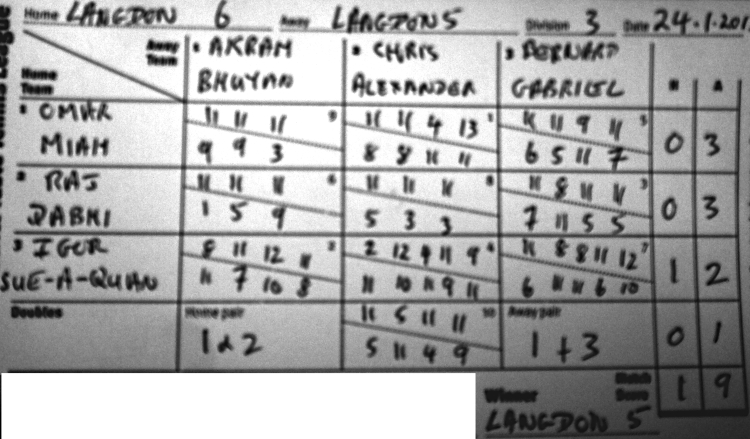 Home LANGDON 6 Away LANGDON 5 Division 3 Date 24.1.201
Away Team 1 AKRAM BHUYAN 2 CHRIS ALEXANDER 3 BERNARD GABRIEL H A
Home Team
1 OMAR MIAH
11 11 11
9 9 3
11 11 4 13
8 8 11 11
11 11 9 11
6 5 11 7
0 3
2 RAJ DABHI
11 11 11
1 5 9
11 11 11
5 3 3
11 8 11 11
7 11 5 5
0 3
3 IGOR SUE-A-QUAN
8 11 12 11
11 7 10 8
2 12 9 11 9
11 10 11 9 11
11 8 8 11 12
6 11 11 6 10
1 2
Doubles Home pair 1 & 2
11 5 11 11 10
5 11 4 9
Away pair 1 + 3
0 1
Winner Match Score 1 9
LANGDON 5